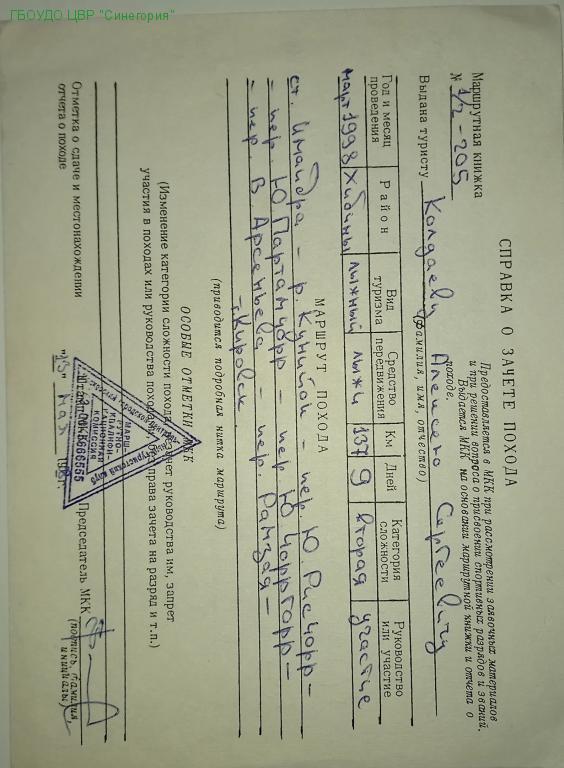 ГБОУДО ЦВР "Синегория"
СПРАВКА О ЗАЧЕТЕ ПОХОДА
Маршрутная книжка
№ 1/2-205
Предоставляется в МКК при рассмотрении заявочных материалов
и при решении вопроса о присвоении спортивных разрядов и званий.
Выдается МКК на основании маршрутной книжки и отчета о
походе.
Выдана туристу Колдаеву Алексею Сергеевичу
(фамилия, имя, отчество)
Год и месяц проведения Район Вид туризма Средство передвижения Км Дней Категория сложности Руководство или участие
март 1998 Хибины лыжный лыжи 137 9 вторая участие
МАРШРУТ ПОХОДА
ст. Имандра - р. Кунийок - пер. Ю. Рисчорр -
- пер. Ю. Партамчорр - пер. Ю. Чорргорр -
- пер. В. Арсеньева - пер. Рамзая -
- г. Кировск
(приводится подробная нитка маршрута)
ОСОБЫЕ ОТМЕТКИ МКК
(Изменение категории сложности похода, зачет руководства им, запрет
участия в походах или руководства походами, права зачета на разряд и т.п.)
Отметка о сдаче и местонахождении
отчета о походе
Председатель МКК
(подпись, фамилия,
инициалы)
МАРШ-
РУТНО-
КВАЛИФИКА-
ЦИОННАЯ
КОМИССИЯ